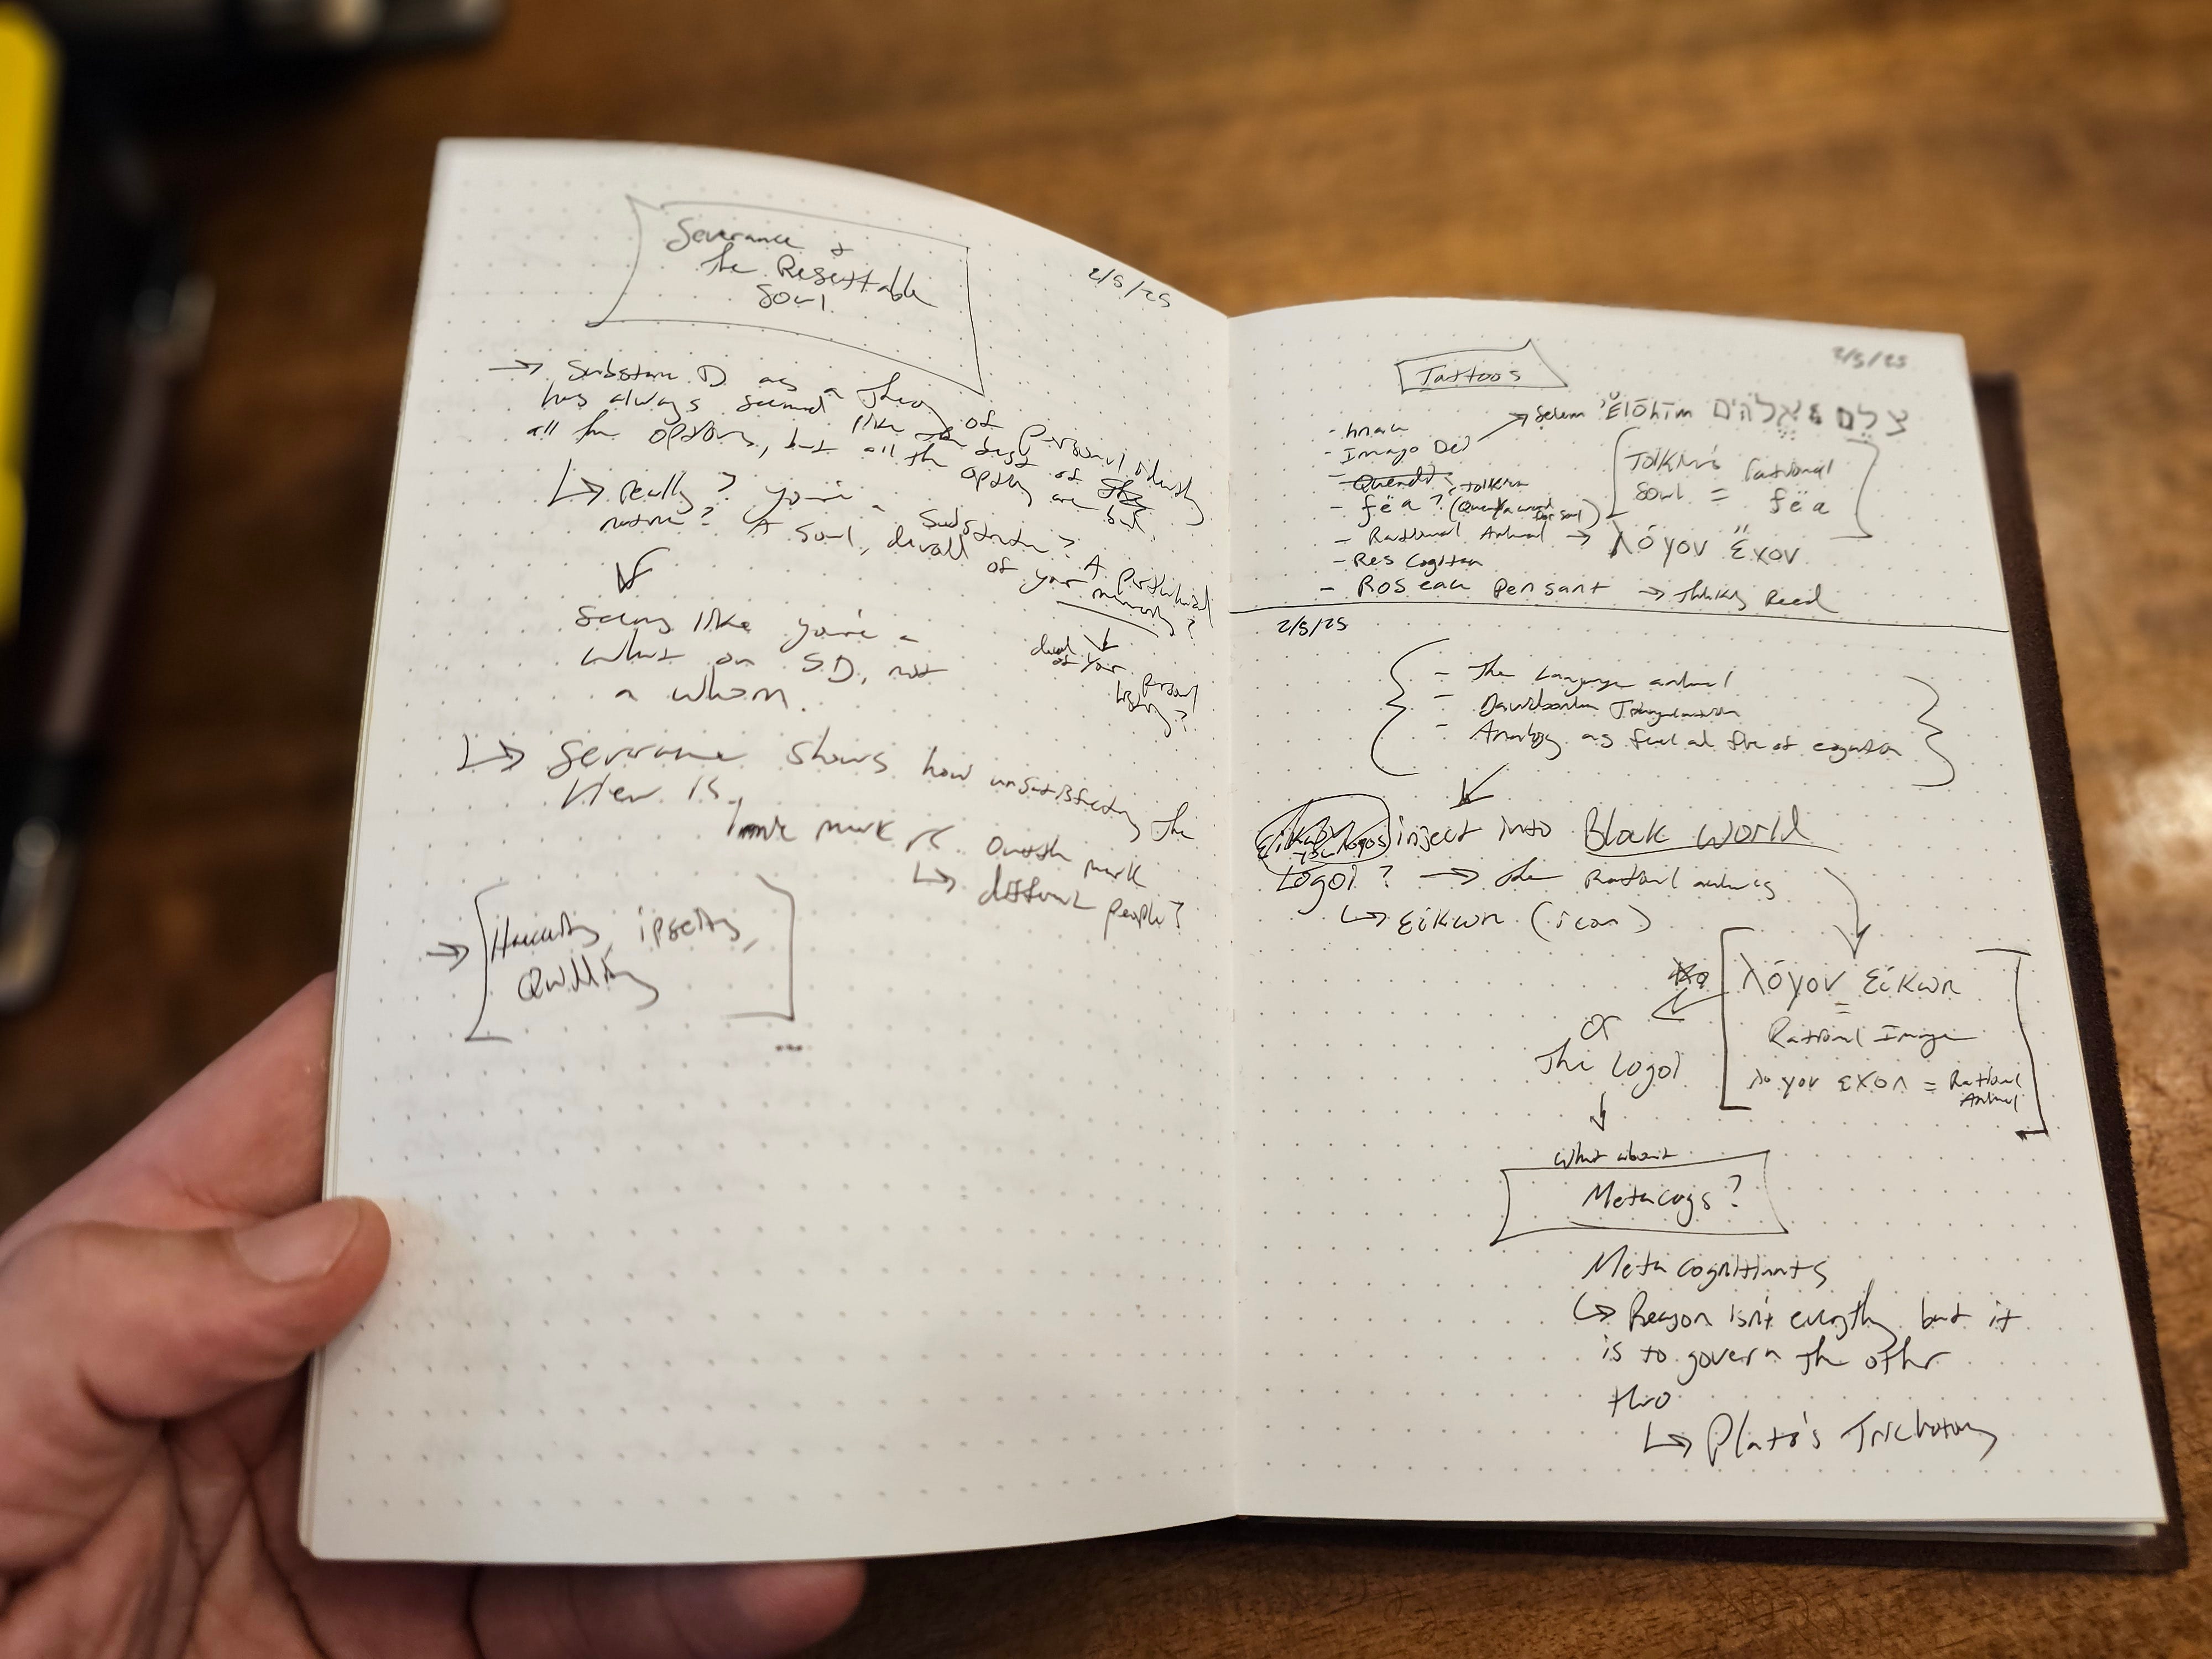 Severance &
the Resettable
Soul
2/5/25
→ Substance D as a Theory of personal identity
has always seemed like the best of the
all the options, but all the options are bad.
↳ Really? you're a substance? A particular
nature? A soul, devoid of your memory?
devoid of your personal
history?
Seems like you're a
what on SD, not
a whom.
↳ Severance shows how unsatisfactory the
view is.
Innie mark vs. Outtie mark
↳ different people?
→ Haecceity, ipseity,
Quiddity
...
2/5/25
Tattoos
- hnau
- Imago Dei → Selem Ĕlōhîm צלם אֱלֹהִים
- Quendi: Tolkien
- fëa? (Quenya word for soul)
Tolkien's rational
soul = fëa
- Rational Animal → λόγον ἔχον
- Res Cogitan
- Roseau pensant → Thinking Reed
2/5/25
- The Language animal
- Davidsonian Triangulation
- Analogy as fuel and fire of cognition
inject into Block World
Logoi? → the Rational animals
↳ εἰκων (icon)
λόγον εἰκων
=
Rational Image
λογον εχον = Rational
Animal
or
The Logoi
What about
Metacogs?
Metacognitiants
↳ Reason isn't everything but it
is to govern the other
two
↳ Plato's Trichotomy